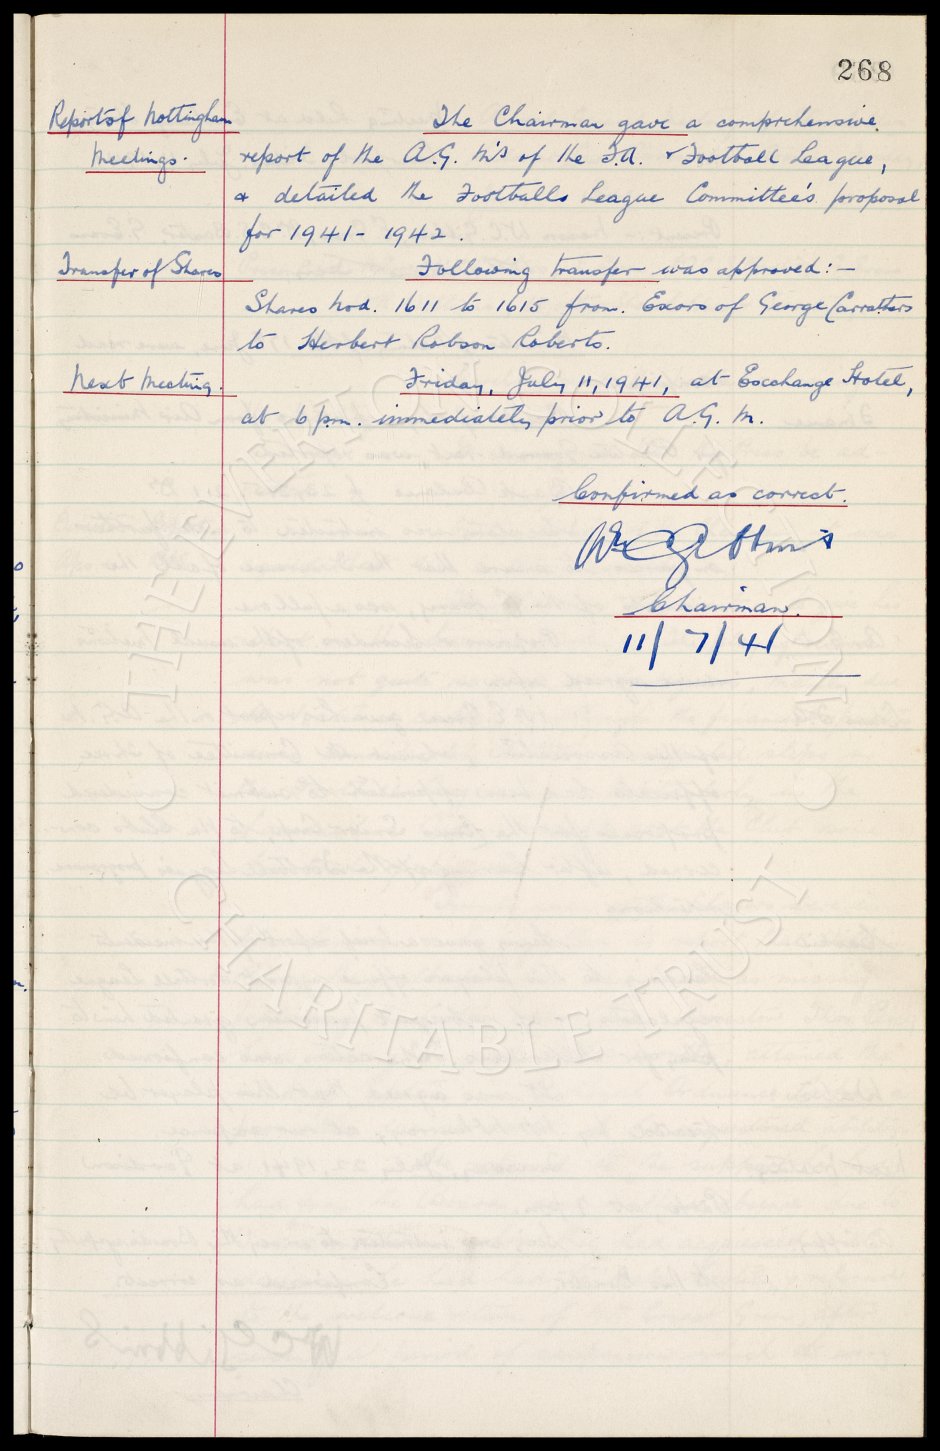 268
Report of Nottingham Meetings.
The Chairman gave a comprehensive
report of the A.G. M's of the F.A. & Football League,
& detailed the Footballs League Committee's proposal
for 1941 - 1942.
Transfer of Shares
Following transfer was approved: -
Shares Nod. 1611 to 1615 from. Exors of George Carruthers
to Herbert Robson Roberts.
Next Meeting.
Friday, July 11, 1941, at Exchange Hotel,
at 6 p.m. immediately prior to A.G. M.
Confirmed as correct.
Chairman.
11/7/41
THE EVERTON COLLECTION
CHARITABLE TRUST